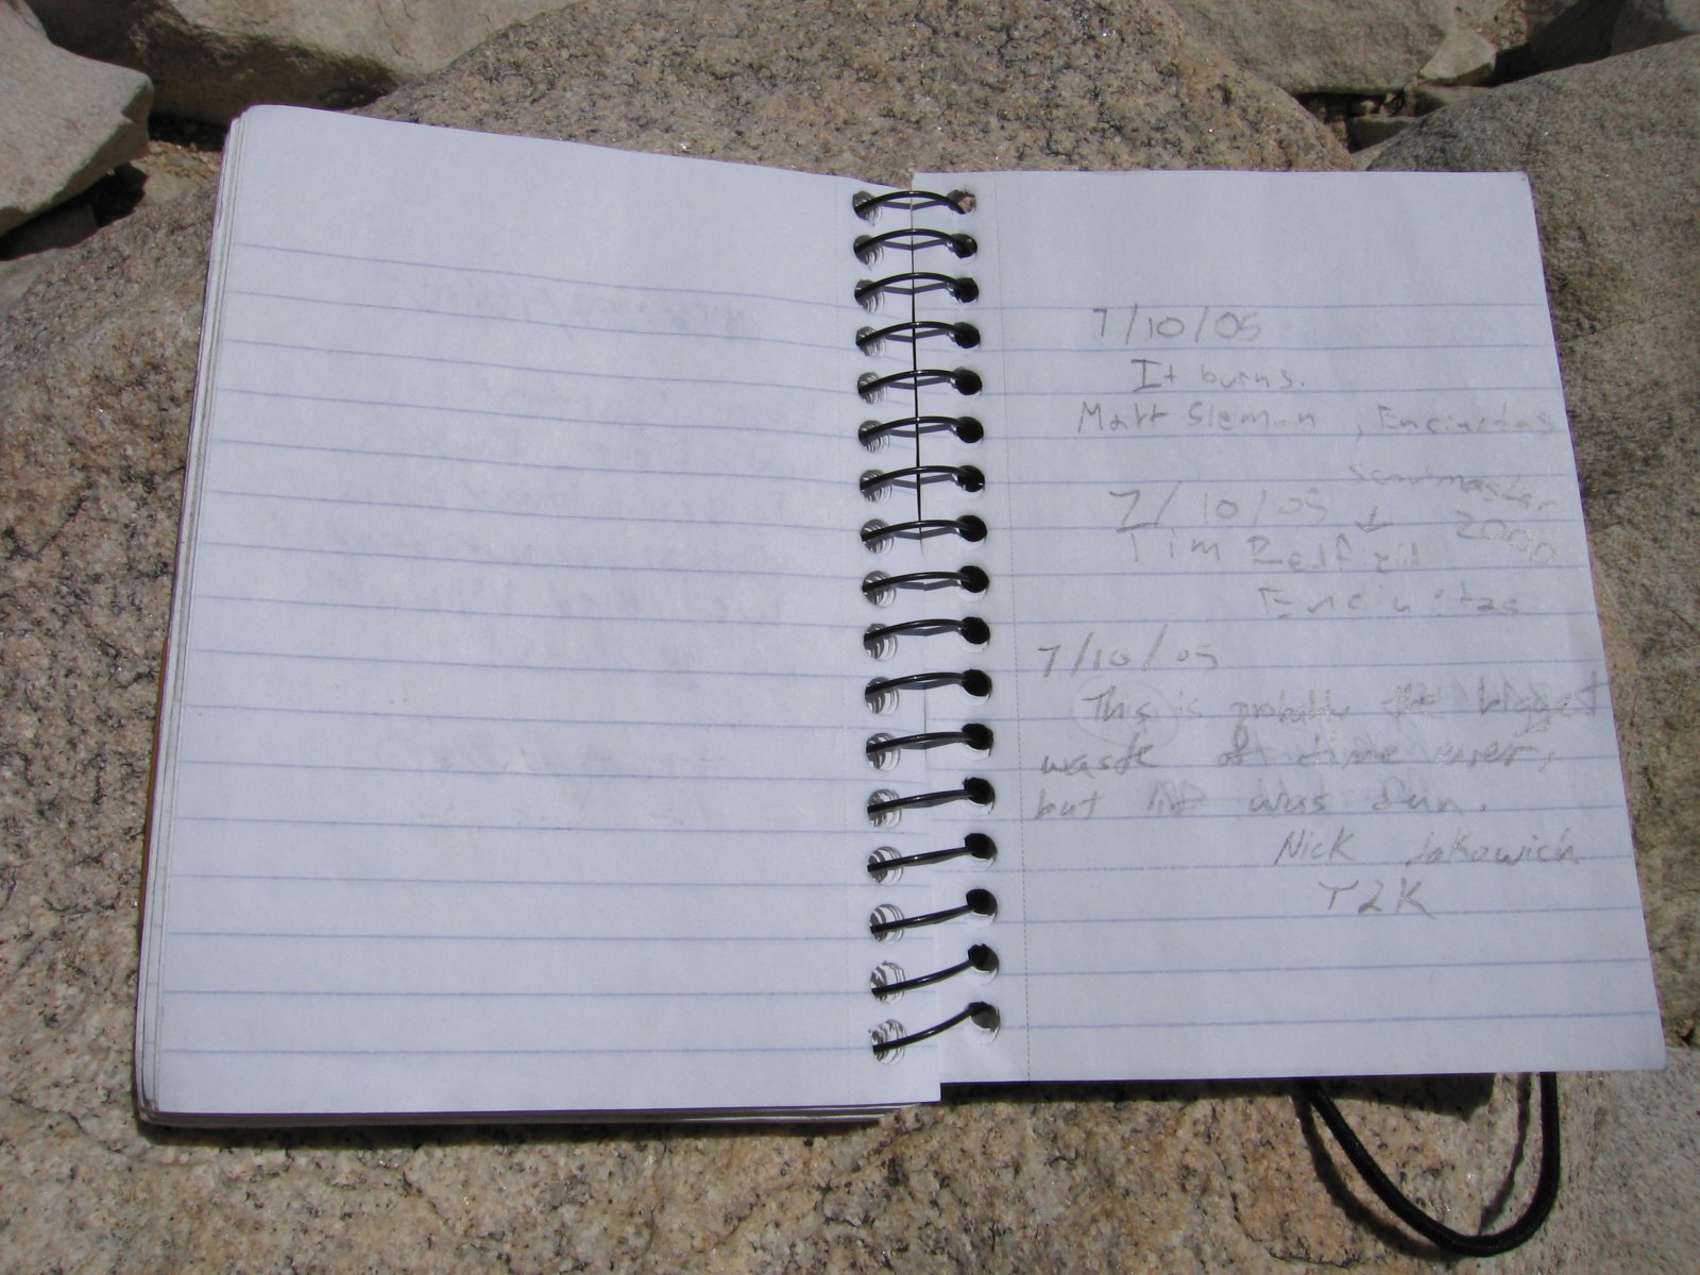 7/10/05
It burns.
Matt Slemon, Encinitas
7/10/05
2000
Tim
Encinitas
7/10/05
This is probably the biggest
waste of time ever,
but it was fun.
Nick Jakowich
T2K